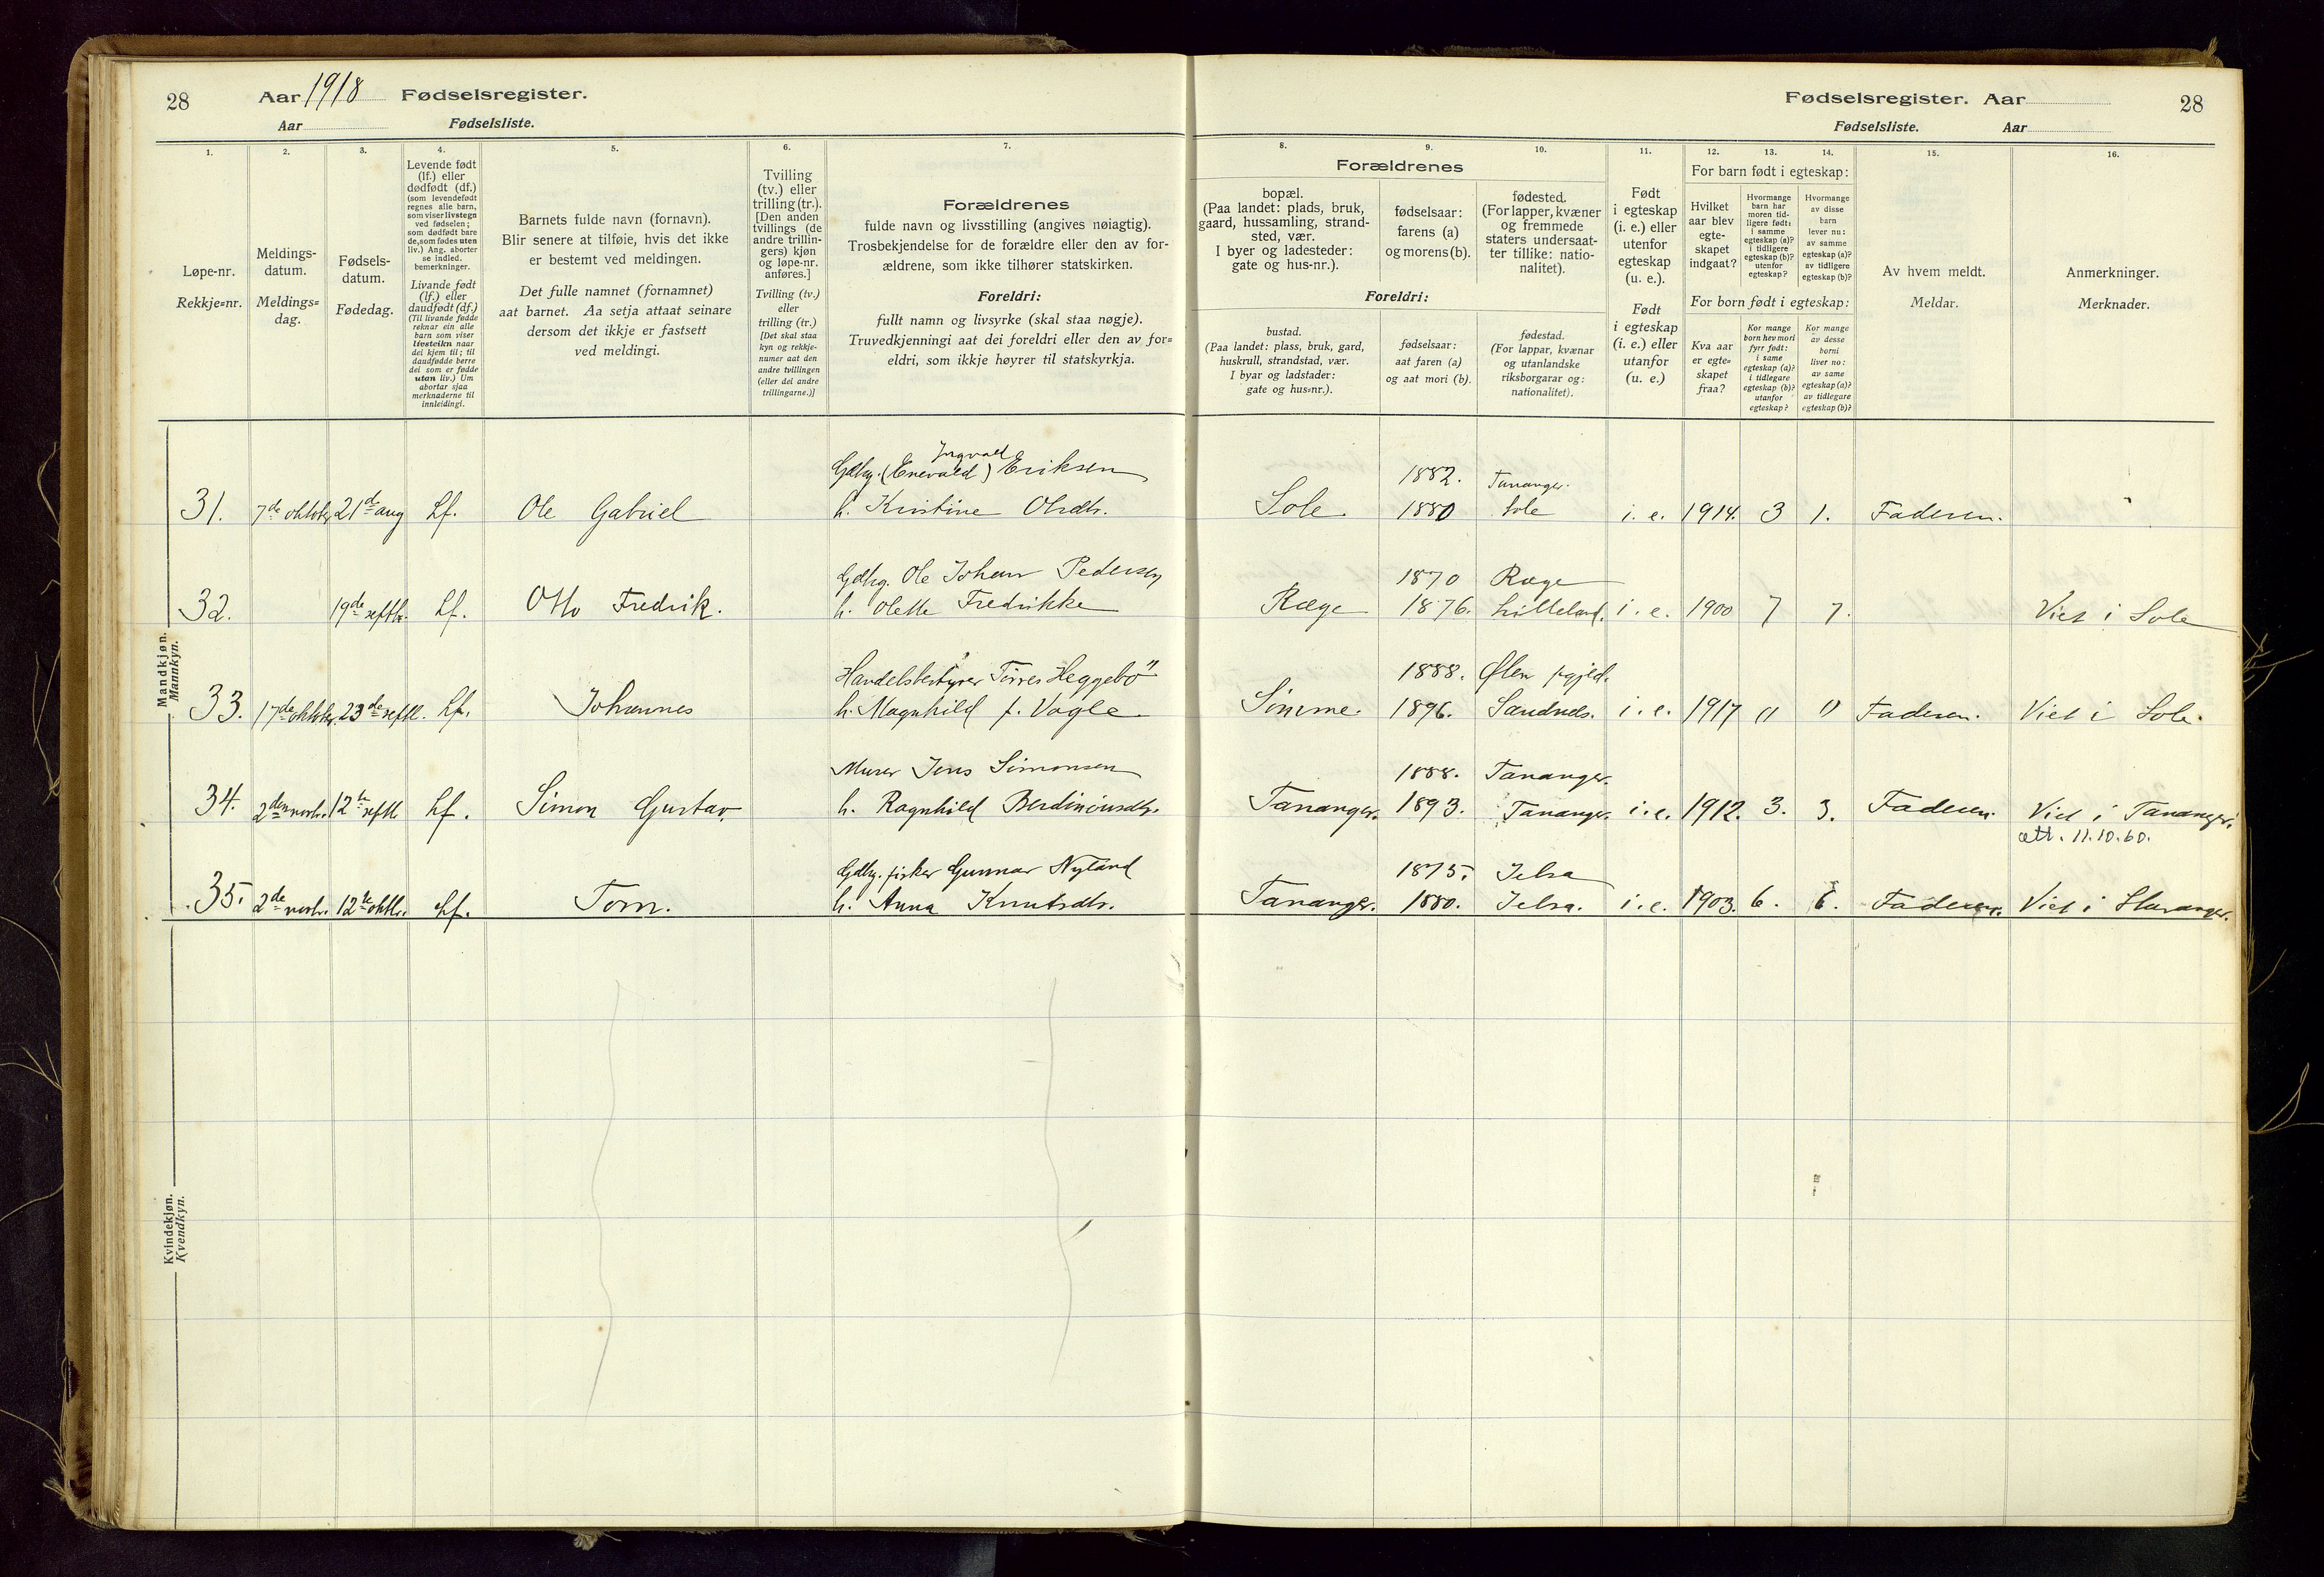 28
Aar 1918 Fødselsregister.
Aar Fødselsliste.
Fødselsregister. Aar
28
Fødselsliste. Aar
1.
Løpe-nr.
Rekkje=nr.
2.
Meldings-
datum.
Meldings=
dag.
3.
Fødsels-
datum.
Fødedag.
4.
Levende født
(lf.) eller
dødfødt (df.)
(som levendefødt
regnes alle barn,
som viser livstegn
ved fødselen;
som dødfødt bare
de, som fødes uten
liv.) Ang. aborter
se indled.
bemerkninger.
Livande født
(lf.) eller
daudfødt (df.)
(Til livande fødde
reknar ein alle
barn som viser
livsteikn naar
dei kjem til; til
daudfødde berre
dei som er fødde
utan liv.) Um
abortar sjaa
merknaderne til
innleidingi.
5.
Barnets fulde navn (fornavn).
Blir senere at tilføie, hvis det ikke
er bestemt ved meldingen.
Det fulle namnet (fornamnet)
aat barnet. Aa setja attaat seinare
dersom det ikkje er fastsett
ved meldingi.
6.
Tvilling
(tv.) eller
trilling (tr.).
[Den anden
tvillings (de
andre trillin-
gers) kjøn
og løpe-nr.
anføres.]
Tvilling (tv.)
eller
trilling (tr.)
[Det skal staa
kyn og rekkje-
numer aat den
andre tvillingen
(eller dei andre
trillingarne.)]
7.
Forældrenes
fulde navn og livsstilling (angives nøiagtig).
Trosbekjendelse for de forældre eller den av for-
ældrene, som ikke tilhører statskirken.
Foreldri:
fullt namn og livsyrke (skal staa nøgje).
Truvedkjenningi aat dei foreldri eller den av for=
eldri, som ikkje høyrer til statskyrkja.
8.
9.
10.
Forældrenes
bopæl.
(Paa landet: plads, bruk,
gaard, hussamling, strand-
sted, vær.
I byer og ladesteder:
gate og hus-nr.).
fødselsaar:
farens (a)
og morens (b).
fødested.
(For lapper, kvæner
og fremmede
staters undersaat-
ter tillike: natio-
nalitet).
Foreldri:
bustad.
(Paa landet: plass, bruk, gard,
huskrull, strandstad, vær.
I byar og ladstader:
gate og hus=nr.).
fødselsaar:
aat faren (a)
og aat mori (b).
fødestad.
(For lappar, kvænar
og utanlandske
riksborgarar og:
nationalitet).
11.
Født
i egteskap
(i. e.) eller
utenfor
egteskap
(u. e.).
Født
i egteskap
(i. e.) eller
utanfor
(u. e.)
12.
13.
14.
For barn født i egteskap:
Hvilket
aar blev
egte-
skapet
indgaat?
Hvormange
barn har
moren tid-
ligere født:
i samme
egteskap (a)?
i tidligere
egteskap (b)?
utenfor
egteskap?
Hvormange
av disse
barn
lever nu:
av samme
egteskap (a)?
av tidligere
egteskap (b)?
For born født i egteskap:
Kva aar
er egte=
skapet
fraa?
Kor mange
born hev mori
fyrr født:
i same
egteskap (a)?
i tidlegare
egteskap (b)?
utanfor
egteskap?
Kor mange
av desse
borni
liver no:
av same
egteskap (a)?
av tidlegare
egteskap (b)?
15.
Av hvem meldt.
Meldar.
16.
Anmerkninger.
Merknader.
Mandkjøn.
Mannkyn.
Ingvald
Gdbg. (Enevald) Eriksen 1882. Tananger.
31. 7de oktober 21de aug Lf. Ole Gabriel h. Kristine Olsdtr. Sole. 1880 Sole i. e. 1914. 3 1. Faderen.
Gdbg. Ole Johan Pedersen 1870 Ræge
32. 19de septbr. Lf. Otto Fredrik. h. Olette Fredrikke Ræge 1876. Lilleland. i. e. 1900 7 7. Viet i Sole
Handelsbestyrer Tørres Heggebö 1888. Ølen prgjld.
33. 17de oktober 23de septb. Lf. Johannes h. Magnhild f. Vagle. Sömme. 1896. Sandnes. i. e. 1917 0 0 Faderen. Viet i Sole.
Murer Jens Simonsen 1888. Tananger.
34. 2den novbr. 12te septb. Lf. Simon Gustav. h. Ragnhild Berdiniusdtr. Tananger. 1893. Tananger. i. e. 1912. 3. 3. Faderen. Viet i Tananger.
att. 11.10.60.
Gdbg. fisker Gunnar Nyland 1875. Jelsa
35. 2de novbr. 12te oktbr. Lf. Tom. h. Anna Knutsdtr. Tananger. 1880. Jelsa. i. e. 1903. 6. 6. Faderen. Viet i Stavanger.
Kvindekjøn.
Kvendkyn.